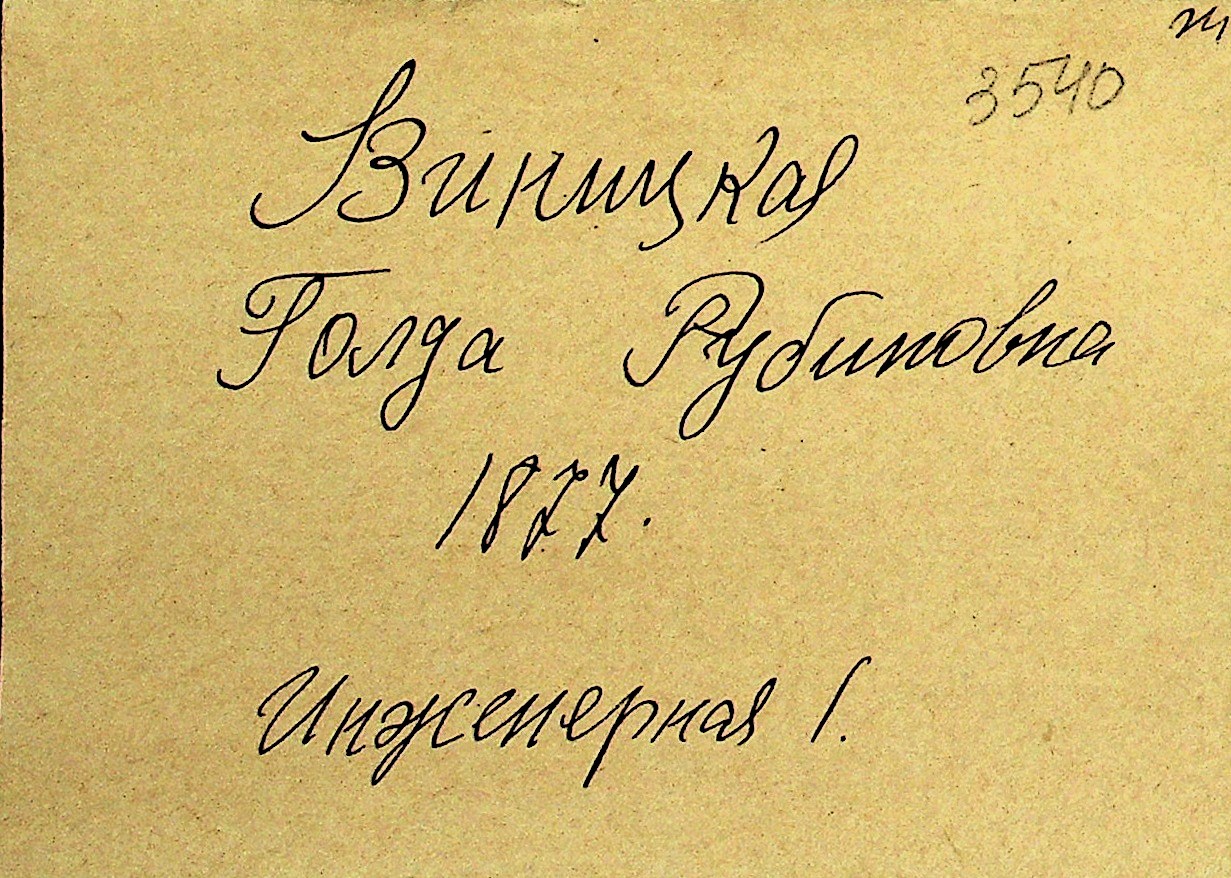 3540
Виницкая
Голда Рубиновна
1877.
Инженерная 1.